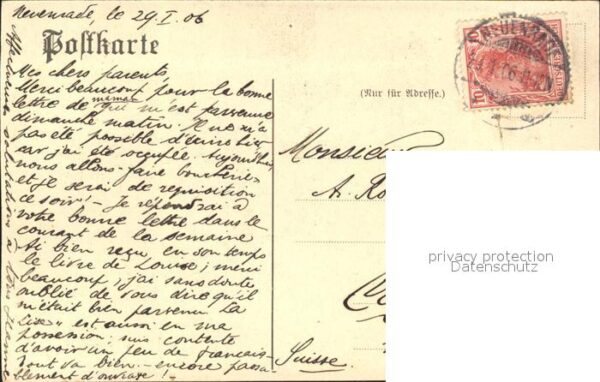 Neuenrade, le 29 I. 06
Postkarte
Mes chers parents,
Merci beaucoup pour la bonne
lettre de maman qui m'est parvenue
dimanche matin. Il ne m'a
pas été possible d'écrire hier
car j'ai été occupée. Aujourd'hui
nous allons faire boucherie
et je serai de requisition
ce soir! - Je répondrai à
votre bonne lettre dans le
courant de la semaine
Ai bien reçu en son temps
le livre de Louise; merci
beaucoup; j'ai sans doute
oublié de vous dire qu'il
m'était bien parvenu. La
"Lise" est aussi en ma
possession; suis contente
d'avoir un peu de français.
Tout va bien - encore passa-
blement d'ouvrage!
Affectueuses salutations à tous
(Nur für Adresse.)
NEUENRADE
10
Monsieur
A. Ro
Suisse.
privacy protection
Datenschutz